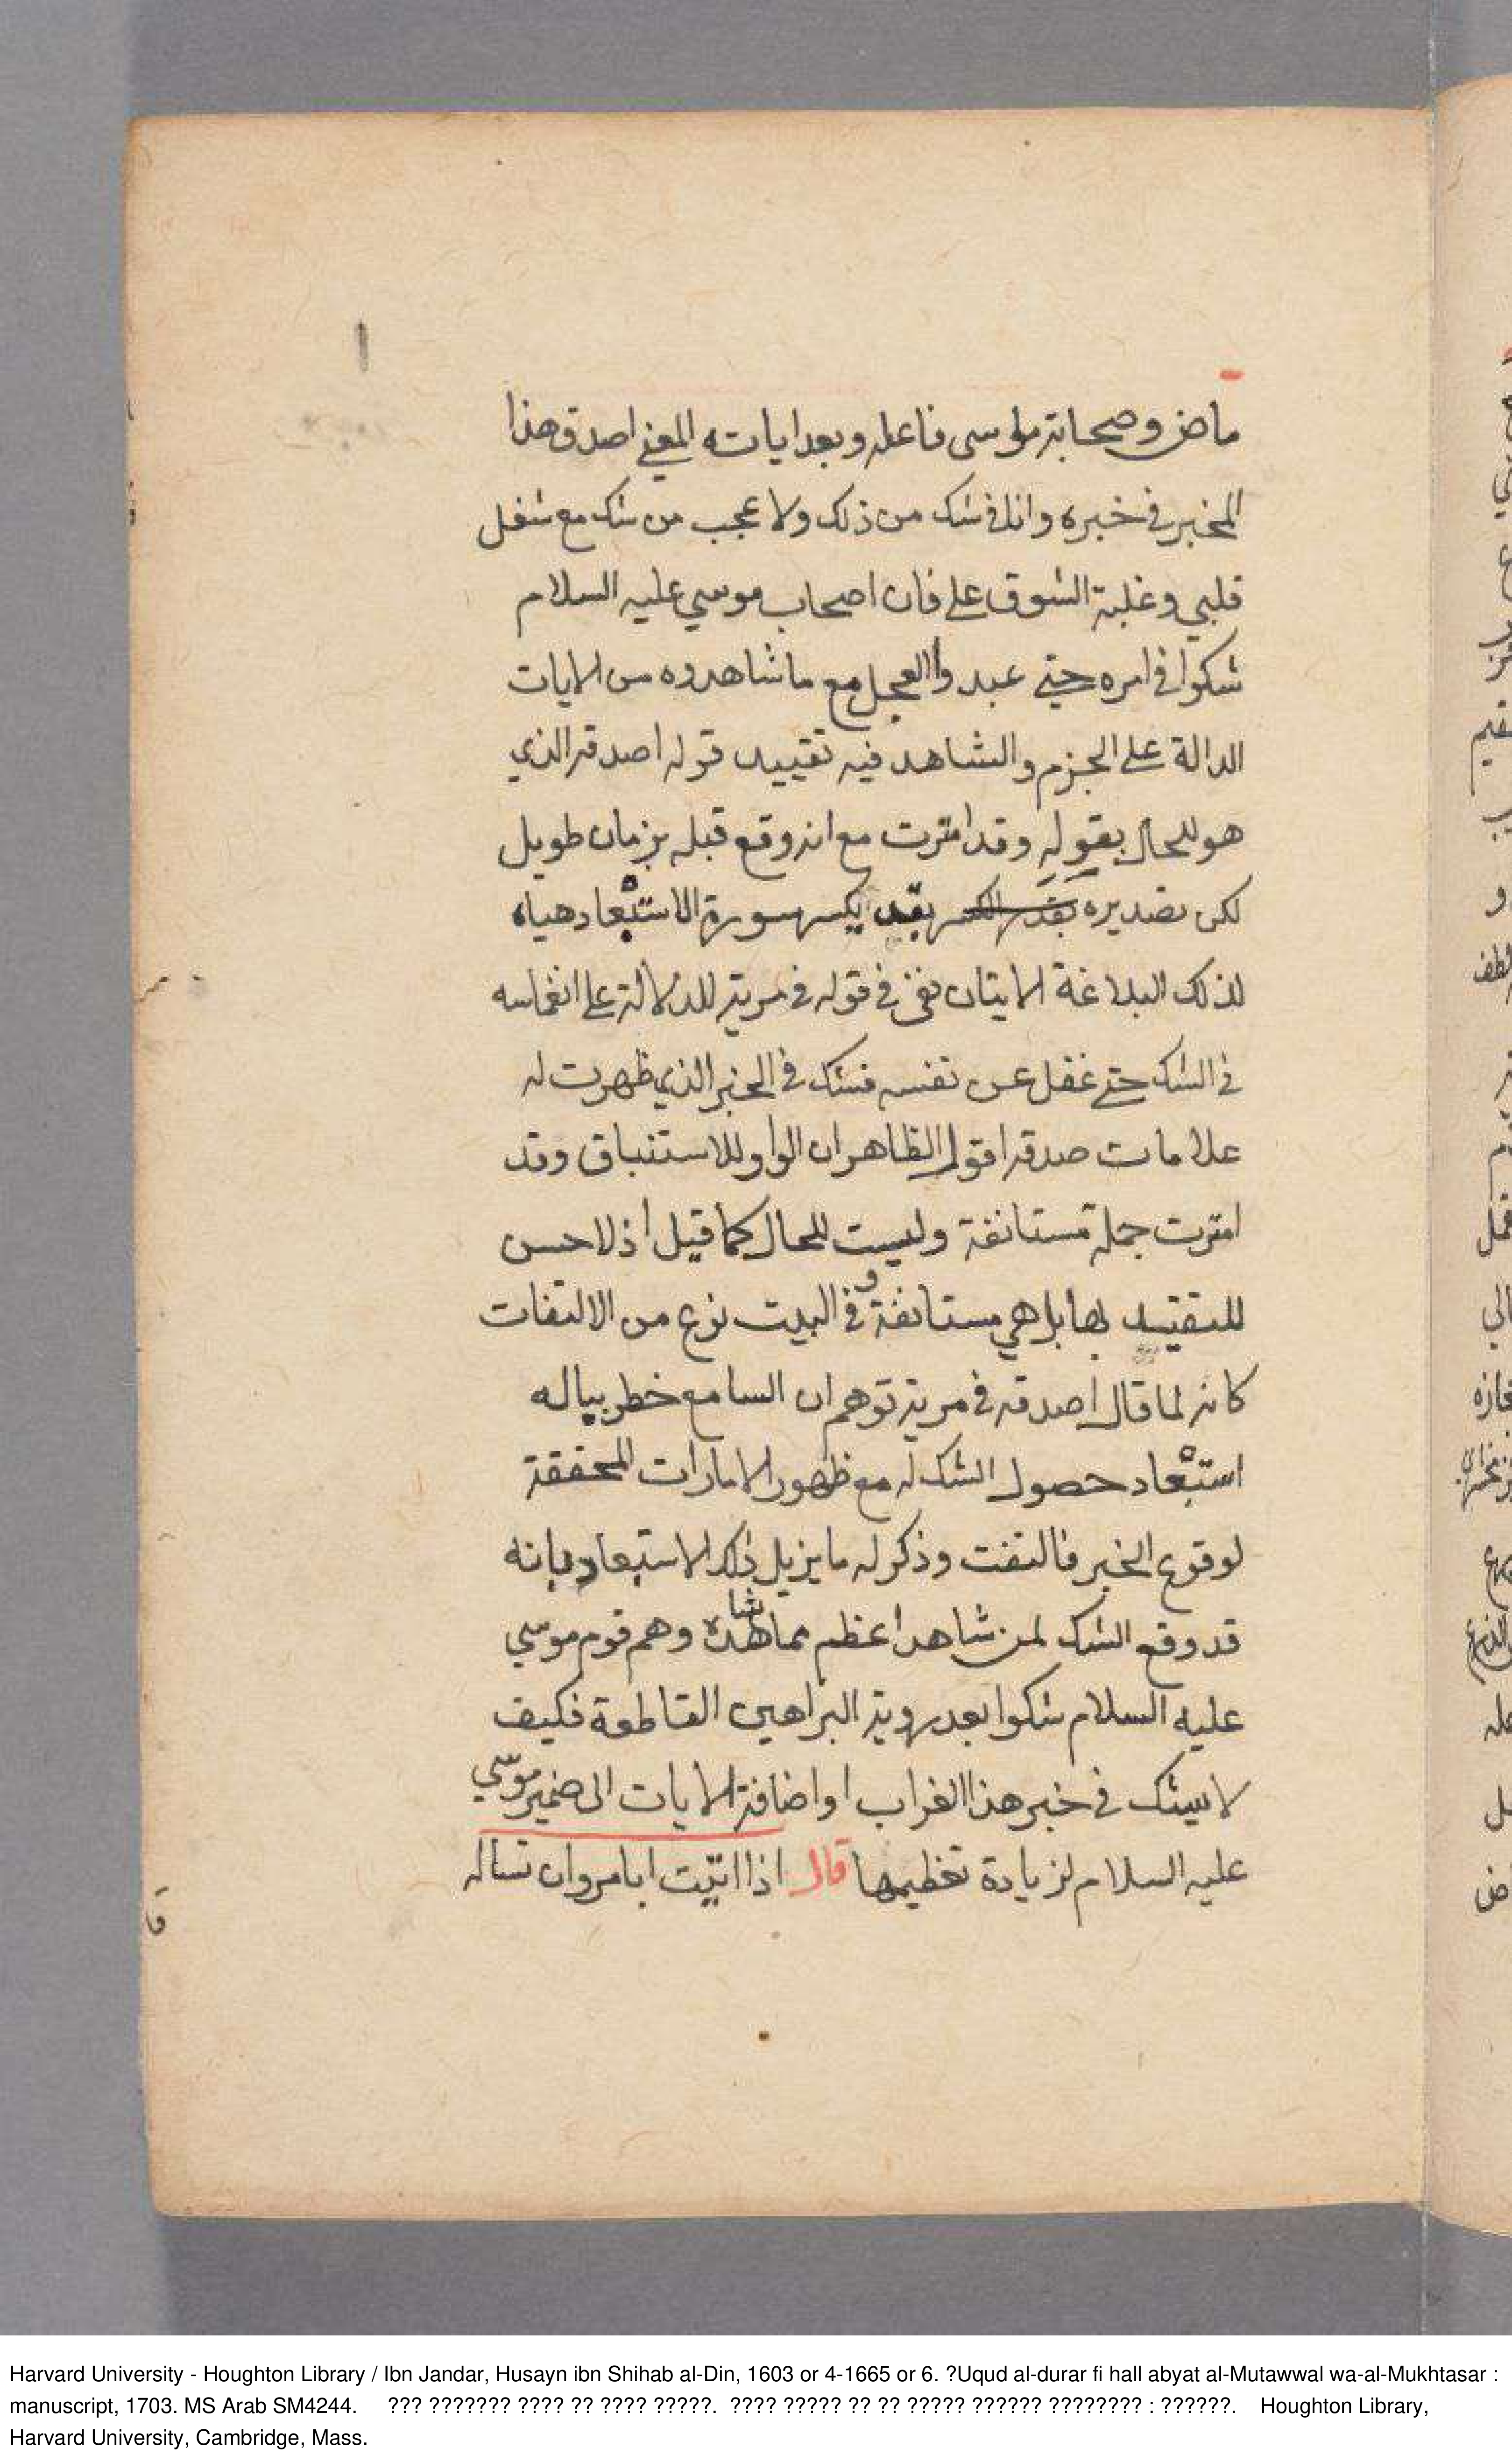 ماض وصحابة موسى فاعله وبعد اياته المعني اصدق هذا
المخبر في خبره وانا في شك من ذلك ولا عجب من شك مع شغل
قلبي وغلبة الشوق علي فان اصحاب موسي عليه السلام
شكوا في امره حتي عبدوا العجل مع ما شاهدوه من الايات
الدالة علي الجزم والشاهد فيه تقييد قوله اصدقه الذي
هو للحال بقوله وقد امترت مع انه وقع قبله بزمان طويل
لكن تصديره بقد يكسر سورة الاستبعاد
لذلك البلاغة الاتيان بفي في قوله في مرية للدلالة علي انغماسه
في الشك حتي غفل عن نفسه فشك في الخبر الذي ظهرت له
علامات صدقه اقول الظاهر ان الواو للاستيناف وقد
امترت جملة مستانفة وليست للحال كما قيل اذ لا حسن
للتقييد بها بل هي مستانفة و في البيت نوع من الالتفات
كانه لما قال اصدقه في مرية توهم ان السامع خطر بباله
استبعاد حصول الشك له مع ظهور الامارات المحققة
لوقوع الخبر فالتفت وذكر له ما يزيل ذلك الاستبعاد بانه
قد وقع الشك لمن شاهد اعظم مما شاهده وهم قوم موسي
عليه السلام شكوا بعد روية البراهين القاطعة فكيف
لا يشك في خبر هذا الغراب واضافة الايات الى ضمير موسي
عليه السلام لزيادة تعظيمها قال اذا اتيت ابا مروان تساله
Harvard University - Houghton Library / Ibn Jandar, Husayn ibn Shihab al-Din, 1603 or 4-1665 or 6. ?Uqud al-durar fi hall abyat al-Mutawwal wa-al-Mukhtasar :
manuscript, 1703. MS Arab SM4244. ??? ??????? ???? ?? ???? ?????. ???? ????? ?? ?? ????? ?????? ???????? : ??????. Houghton Library,
Harvard University, Cambridge, Mass.